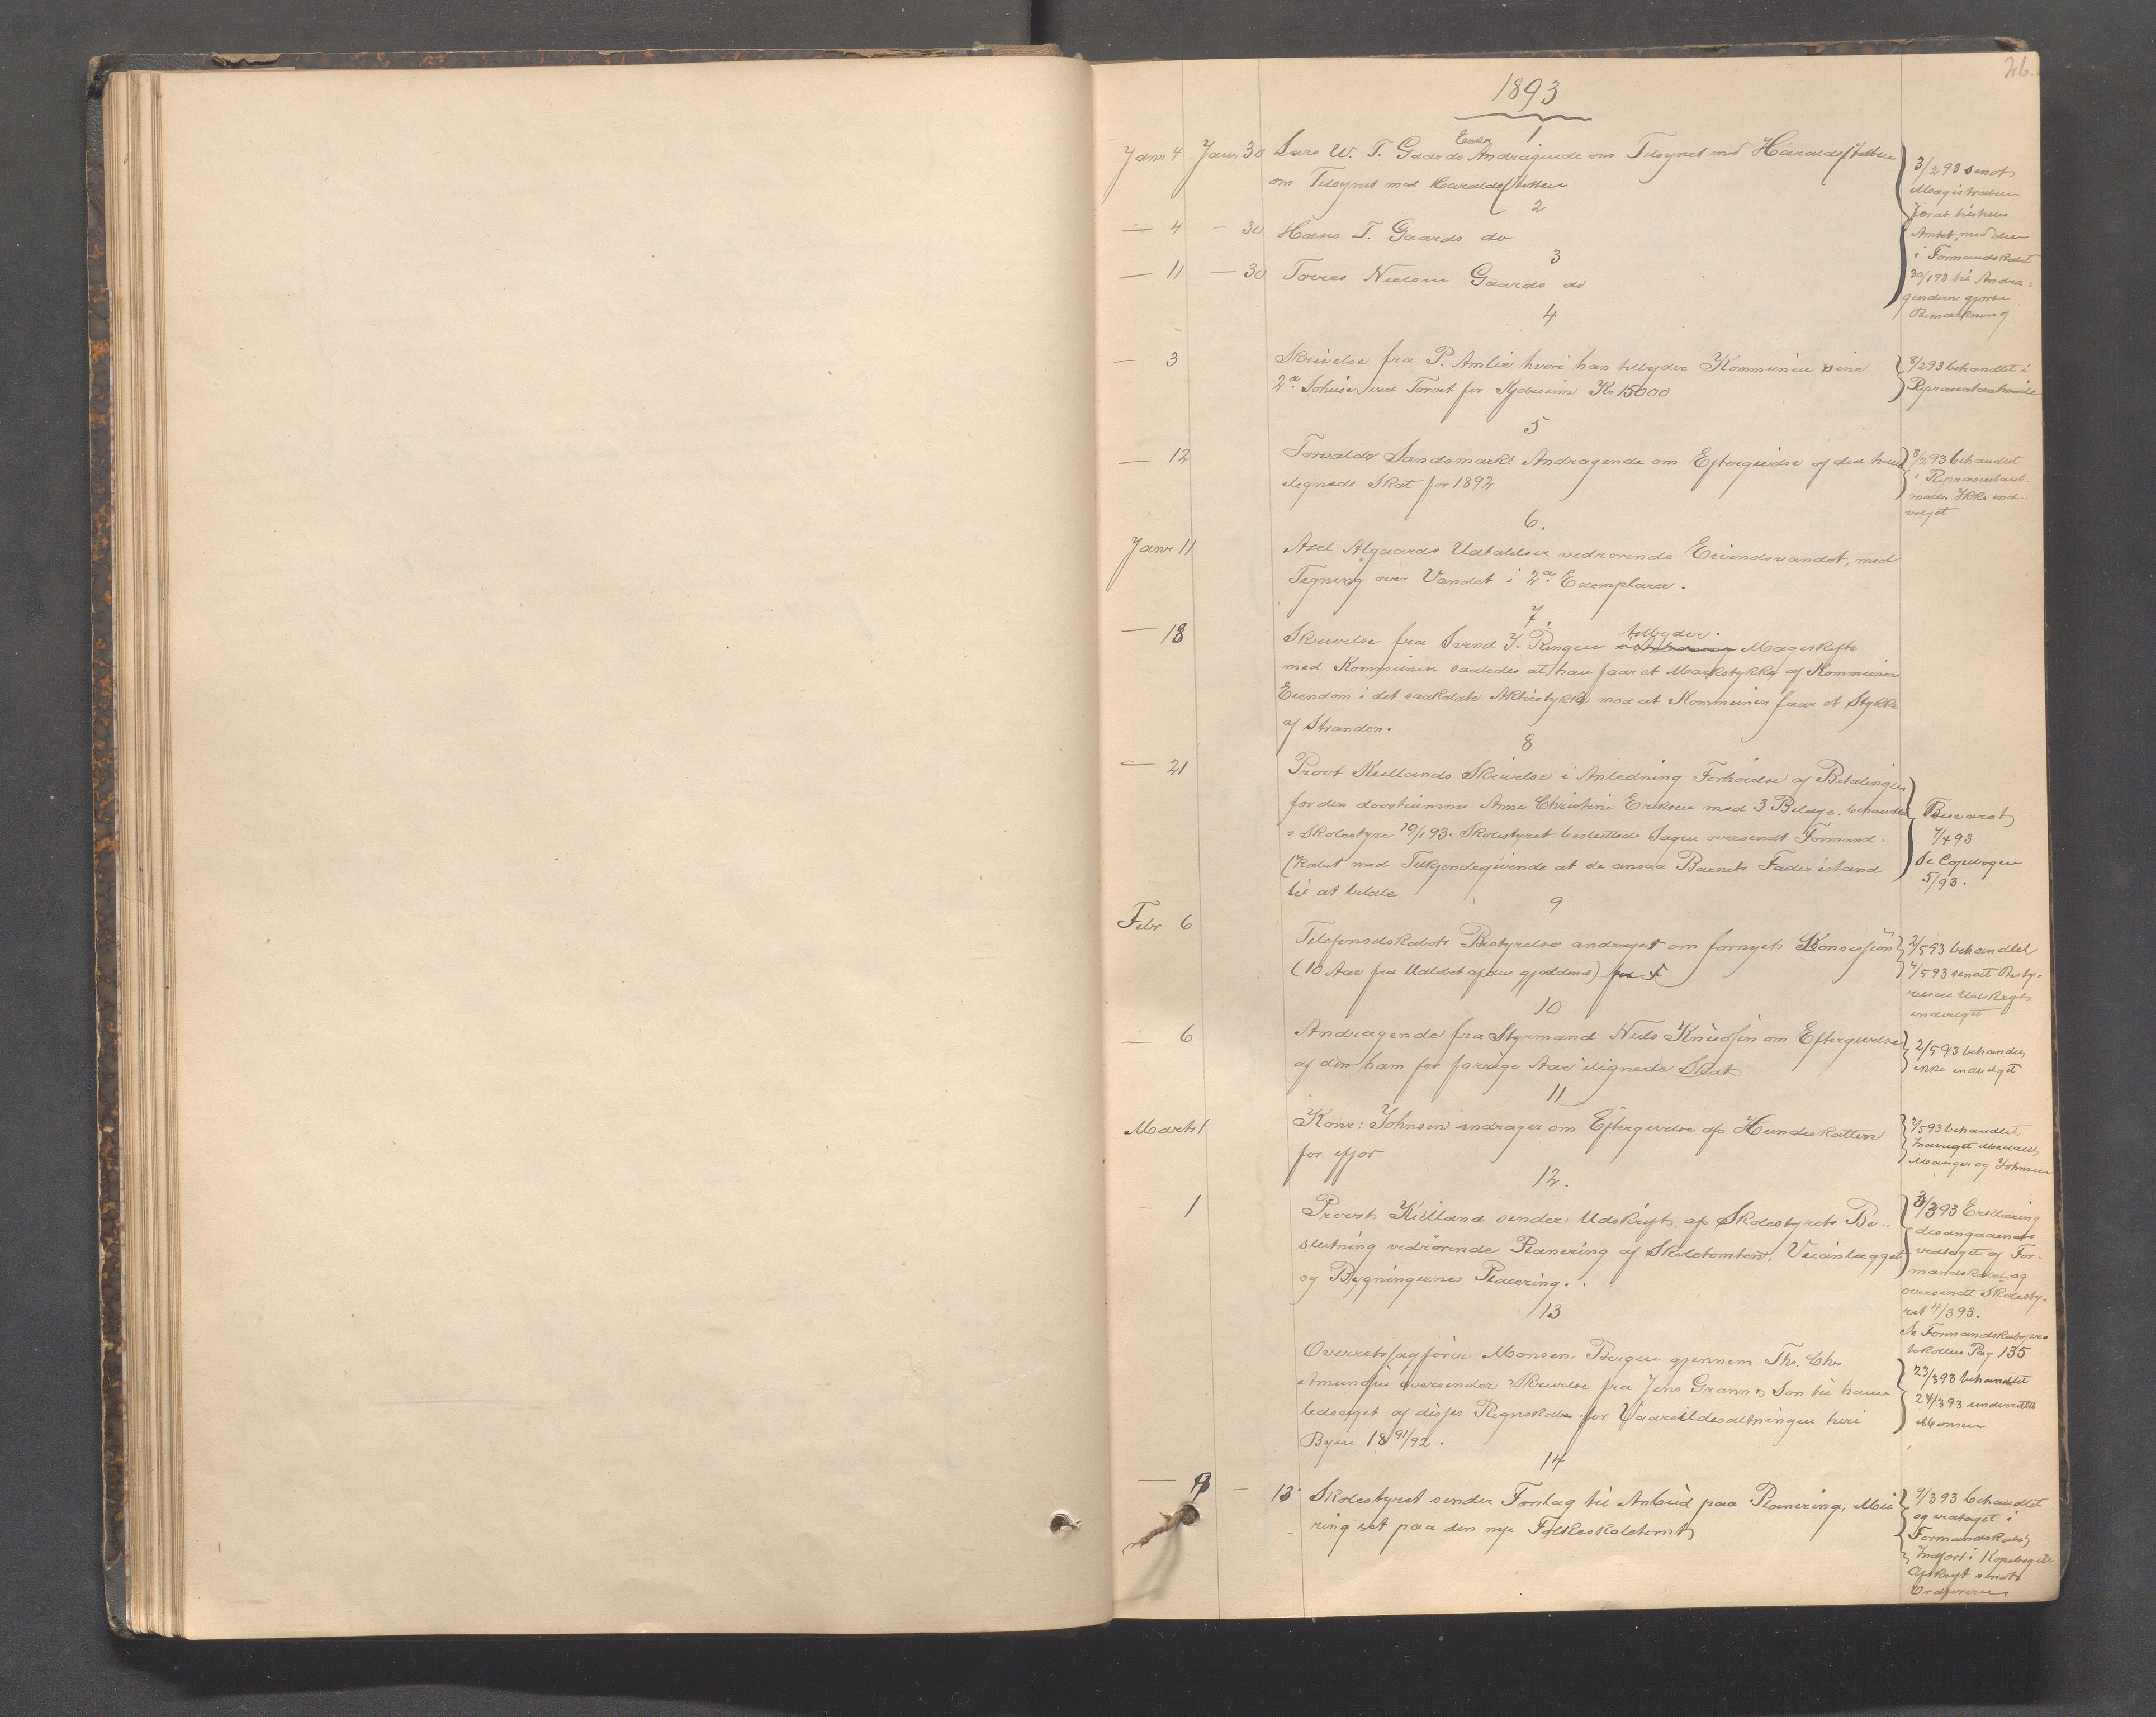 26.
1893
1
Janr 4 Janr 30 Lars W. T. Gaards Enke Andragende om Tilsynet med Haraldsstøtten
om Tilsynet med Haraldsstøtten
3/2 93 sendt
Magistraten
for at tilstilles
Amtet, med den
i Formandskabet
30/1 93 til Andra-
genderne gjorte
Bemærkning
2
— 4 — 30 Hans T. Gaards do
3
— 11 — 30 Tores Nielsen Gaards do
4
— 3 Skrivelse fra P. Amlie hvori han tilbyder Kommunen sine
2de Søhuse ved Torvet for Kjøbesum Kr 15000
8/2 93 behandlet i
Repræsentantmøde
5
— 12 Torvald Sandsmarks Andragende om Eftergivelse af den ham
ilignede Skat for 1892
8/2 93 behandlet
i Repræsentant-
møde. Ikke ind-
vilget
6.
Janr 11 Axel Algaards Udtalelser vedrørende Eivindsvandet, med
Tegning over Vandet i 2de Exemplarer.
7.
— 18 Skrivelse fra Svend J. Ringen tilbyder Mageskifte
med Kommunen saaledes at han faar et Markstykke af Kommunens
Eiendom i det saakaldte Aktiestykke mod at Kommunen faar et Stykke
af Stranden.
8
— 21 Provst Kiellands Skrivelse i Anledning Forhøielse af Betalingen
for den døvstumme Anne Christine Eriksen med 3 Bilage, behandlet
i Skolestyre 10/1 93. Skolestyret besluttede Sagen oversendt Formand-
skabet med Tilkjendegivende at de ansaa Barnets Fader istand
til at betale
Besvaret
7/4 93
Se Copibogen
5/93.
9
Febr 6 Telefonselskabets Bestyrelse andraget om fornyet Koncession
(10 Aar fra Udløbet af den gjældende) for F
2/5 93 behandlet
4/5 93 sendt Besty-
relsen Udskrift
indvilget
10
— 6 Andragende fra Styrmand Niels Knudsen om Eftergivelse
af den ham for forrige Aar ilignede Skat
2/5 93 behandlet
ikke indvilget
11
Marts 1 Konr: Johnsen andrager om Eftergivelse af Hundeskatten
for ifjor
2/5 93 behandlet.
Indvilget Meddelt
Manger og Johnsen
12.
— 1 Provst Kielland sender Udskrift af Skolestyrets Be-
slutning vedrørende Planering af Skoletomten, Veianlægget
og Bygningerne Placering.
3/3 93 Erklæring
desangaaende
vedtaget af For-
mandskabet og
oversendt Skolesty-
ret 4/3 93.
Se Formandskabspro
tokollen Pag 135
13
Overretssagfører Monsen Bergen gjennem Th. Chr
Amundsen oversender Skrivelse fra Jens Gran & Søn til ham
ledsaget af disses Regnskaber for Vaarsildesaltningen heri
Byen 18 91/92.
23/3 93 behandlet
24/3 93 underrettet
Monsen
14
— 9 — 13 Skolestyret sender Forslag til Anbud paa Planering, Mu
ring set paa den nye Folkeskoletomt
9/3 93 behandlet
og vedtaget i
Formandskabet
Indført i Kopibogen
Afskrift sendt
Ordføreren